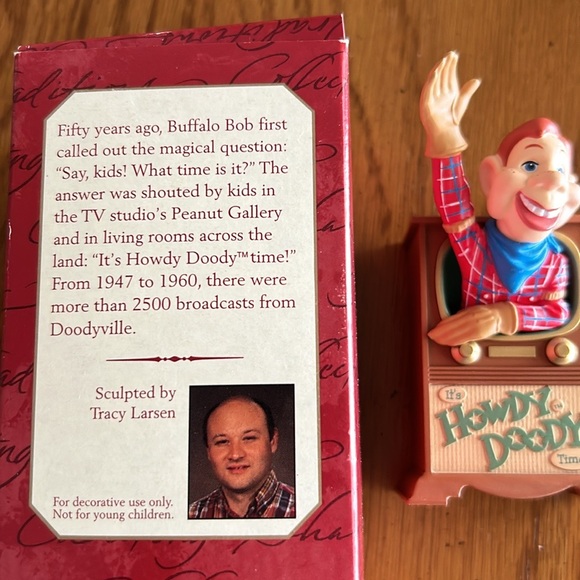 Traditions
Fifty years ago, Buffalo Bob first
called out the magical question:
“Say, kids! What time is it?” The
answer was shouted by kids in
the TV studio’s Peanut Gallery
and in living rooms across the
land: “It’s Howdy Doody™ time!”
From 1947 to 1960, there were
more than 2500 broadcasts from
Doodyville.
Sculpted by
Tracy Larsen
For decorative use only.
Not for young children.
It's
HOWDY
DOODY
Time